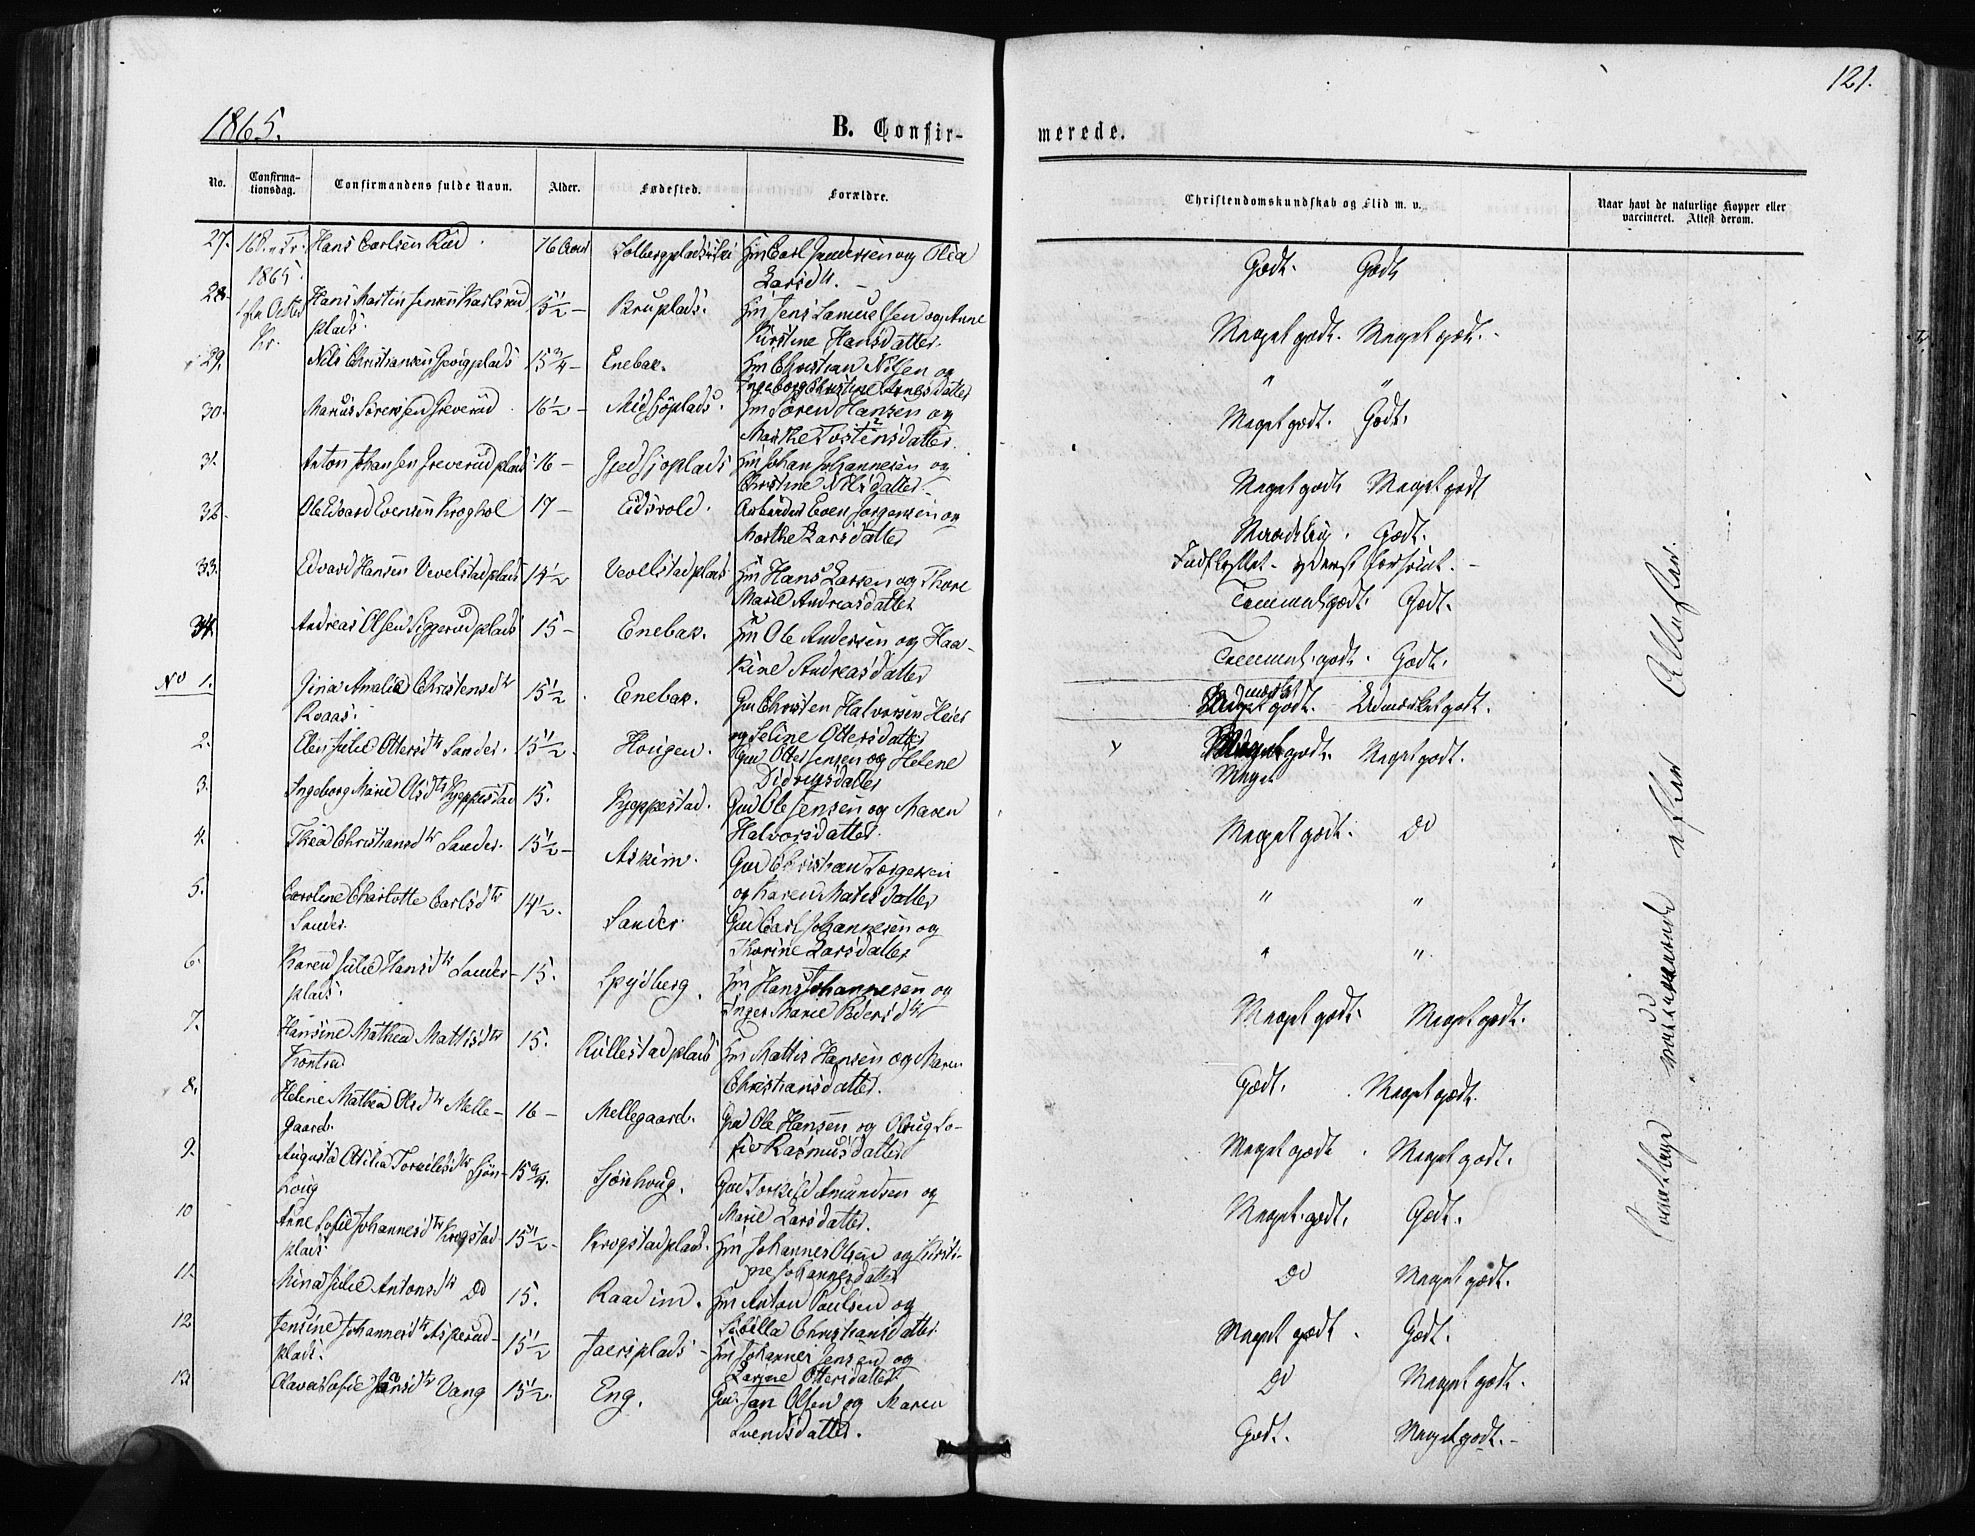 121.
1865.
B. Confir-
merede.
No.
Confirma-
tionsdag.
Confirmandens fulde Navn.
Alder.
Fødested.
Forældre.
Christendomskundskab og Flid m. v.
Naar havt de naturlige Kopper eller
vaccineret. Attest derom.
27. Hans Carlsen 16 Aar Hm Carl Andersen og Olea
1865. Larsd. Godt. Godt
28. Hans Martin Jensen 15 1/2 - Bruplads. Hm Jens Samuelsen og Anne
plads. Kirstine Hansdatter. Meget godt. Meget godt.
29. Nils Christiansen 15 3/4 - Enebak. Hm Christian Nilsen og
Ingeborg Christine Arnesdatter " "
30. Marius Sørensen Greverud 16 1/2 - Midsjøplads. Hm Søren Hansen og
Marthe Tostensdatter. Meget godt. Godt.
31. Anton Johansen Greverud plads 16 - Gjedsjøplads Hm Johan Johannesen og
Christine Nilsdatter. Meget godt Meget godt
32. Ole Edvard Evensen Kroghol 17 - Eidsvold. Arbeider Even Jørgensen og
Marthe Larsdatter Godt.
33. Edvard Hansen Vevelstadplads 14 1/2 Vevelstadplads Hm Hans Larsen og Thore
Marie Andreasdatter Temmel. godt. Godt.
34. Andreas Olsen Siggerudplads 15 - Enebak. Hm Ole Andersen og Haa-
kine Andreasdatter Temmel. godt. Godt.
No 1. Gina Amalie Christensdtr 15 1/2 Enebak. Gm Christen Halvorsen Heier
Raaas. og Seline Ottersdatter godt. Udmærket godt.
2. Elen Julie Ottersdtr Sander. 15 1/2. Hougen. Gm Otter Jensen og Helene
Didriksdatter Meget godt. Meget godt.
3. Ingeborg Marie Olsdtr Kjeppestad 15. Kjeppestad. Gm Ole Jensen og Maren
Halvorsdatter. Meget godt. Do
4. Thea Christiansdtr Sander. 15 1/2 - Askim. Gm Christian Torgersen
og Karen Matisdatter " "
5. Caroline Charlotte Carlsdtr 14 1/2. Sander. Gm Carl Johannesen og
Sander. Thorine Larsdatter " "
6. Karen Julie Hansdtr Sander- 15. Spydberg. Hm Hans Johannesen og
plads. Inger Marie Pedersdtr Meget godt. Meget godt.
7. Hansine Mathea Mattisdtr 15. Rullestadplads Hm Mattis Hansen og Maren
Kontra Christiansdatter. Godt. Meget godt.
8. Helene Mathea Olsdtr Melle- 16 - Mellegaard. Gm Ole Hansen og Olaug So-
gaard. fie Rasmusdatter Meget godt. Meget godt.
9. Augusta Otilia Torkilsdtr Sjøn- 15 3/4. Sjønhoug. Gm Torkild Amundsen og
houg Marie Larsdatter. Meget godt. Godt.
10 Anne Sofie Johannesdtr Krogstad 15 1/2- Krogstadplads. Hm Johannes Olsen og Kirsti-
plads. ne Johannesdatter Do Meget godt.
11. Mina Julie Antonsdtr Do 15. Raadim. Hm Anton Paulsen og
Sibilla Christiansdatter Meget godt. Godt.
12 Jensine Johannesdtr Asperud- 15 1/2 Jaersplads - Hm Johannes Jensen og
plads. Larine Ottersdatter Do Meget godt.
13. Olava Sofie Jansdtr Vang 15 1/2. Eng. Gm. Jan Olsen og Maren
Svendsdatter. Godt. Meget godt.